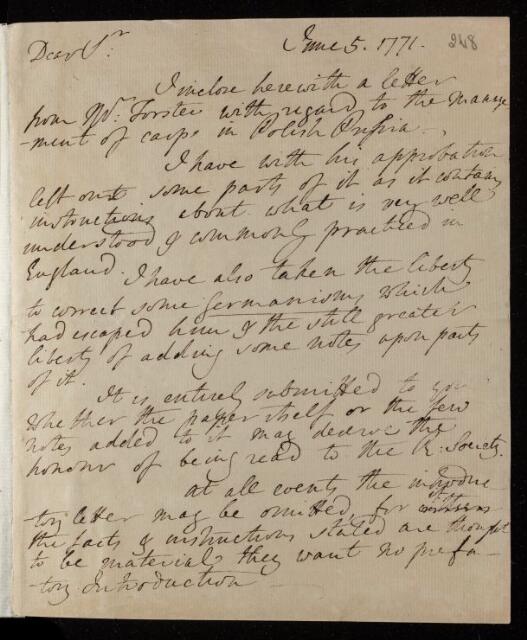 June 5. 1771. 248
Dear Sr:
I inclose herewith a letter
from Mr. Forster with regard to the manage-
-ment of carps in Polish Prussia.
I have with his approbation
left out some parts of it as it contains
instructions about what is very well
understood & commonly practiced in
England.
I have also taken the liberty
to correct some germanisms which
had escaped him & the still greater
liberty of adding some notes upon parts
of it.
It is entirely submitted to you
whether the paper itself or the few
notes added to it may deserve the
honour of being read to the R. Society.
at all events the introduc
tory letter may be omitted, for if the
the facts & instructions stated are thought
to be material they want no prefa-
-tory Introduction